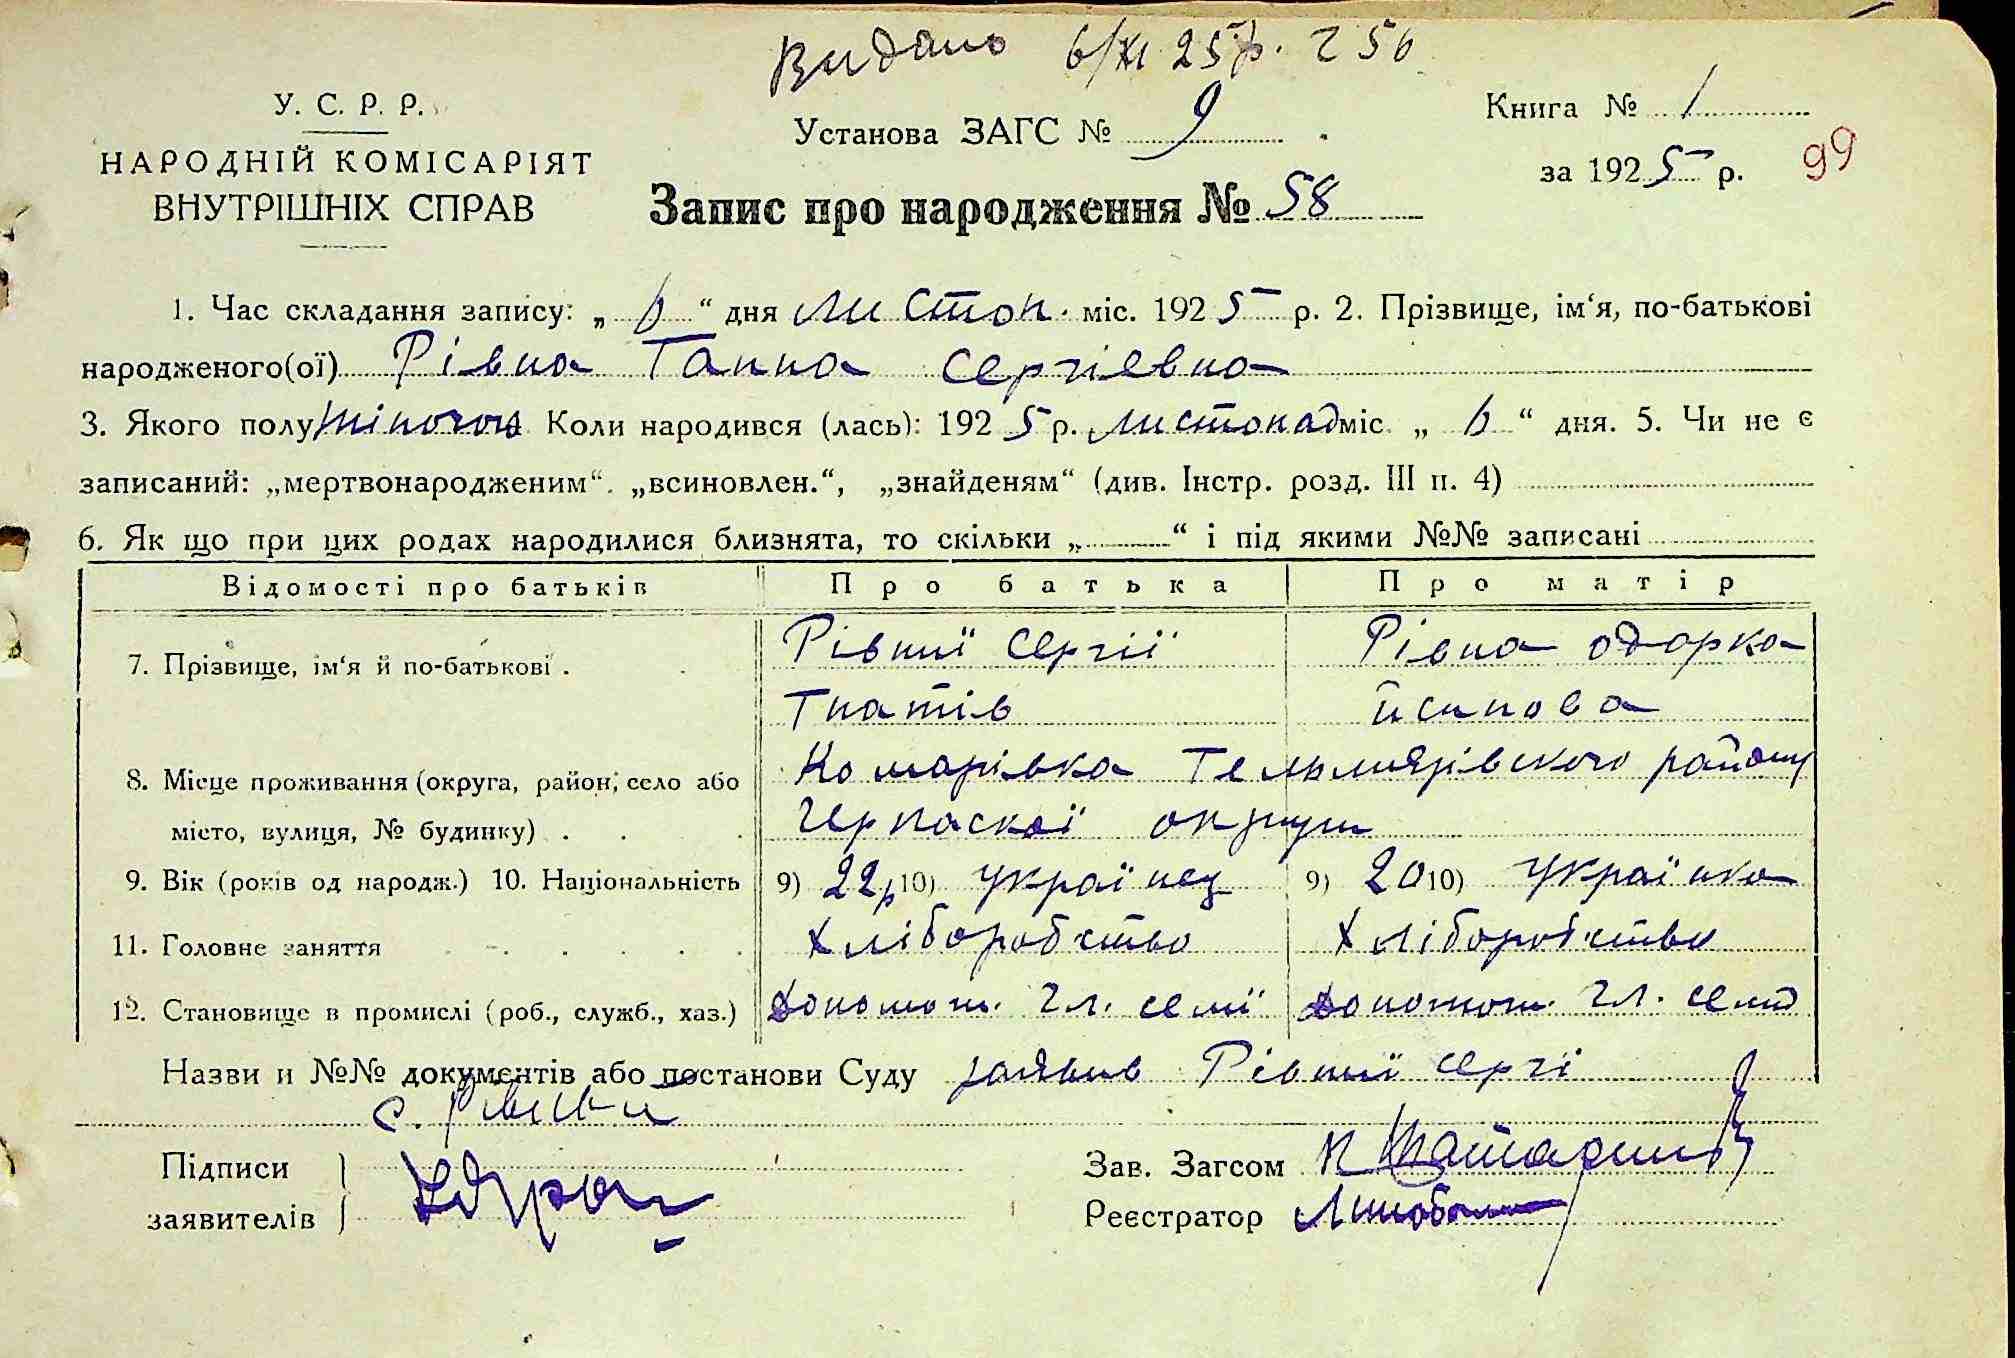 Видано 6/XI 25р. г 56
У. С. Р. Р.
НАРОДНІЙ КОМІСАРІЯТ
ВНУТРІШНІХ СПРАВ
Установа ЗАГС № 9
Книга № 1
за 1925 р. 99
Запис про народження № 58
1. Час складання запису: „ 6 “ дня листоп. міс. 1925 р. 2. Прізвище, ім‘я, по-батькові
народженого(ої) Рівна Ганна Сергієвна
3. Якого полу жіночого Коли народився (лась): 1925 р. листопад міс. „ 6 “ дня. 5. Чи не є
записаний: „мертвонародженим“. „всиновлен.“, „знайденям“ (див. Інстр. розд. III п. 4)
6. Як що при цих родах народилися близнята, то скільки „ “ і під якими №№ записані
Відомості про батьків Про батька Про матір
7. Прізвище, ім‘я й по-батькові . Рівний Сергій Рівна Одарка
Гнатів Йсипова
8. Місце проживання (округа, район, село або Комарівка району
місто, вулиця, № будинку) . Черкаскої округи
9. Вік (років од народж.) 10. Національність 9) 22р 10) Українец 9) 20 10) Українка
11. Головне заняття Хліборобство Хліборобство
12. Становище в промислі (роб., служб., хаз.) допомож. гл. семї допомож. гл. семї
Назви и №№ документів або постанови Суду заявив Рівний Сергі
Підписи
заявителів
Зав. Загсом
Реєстратор